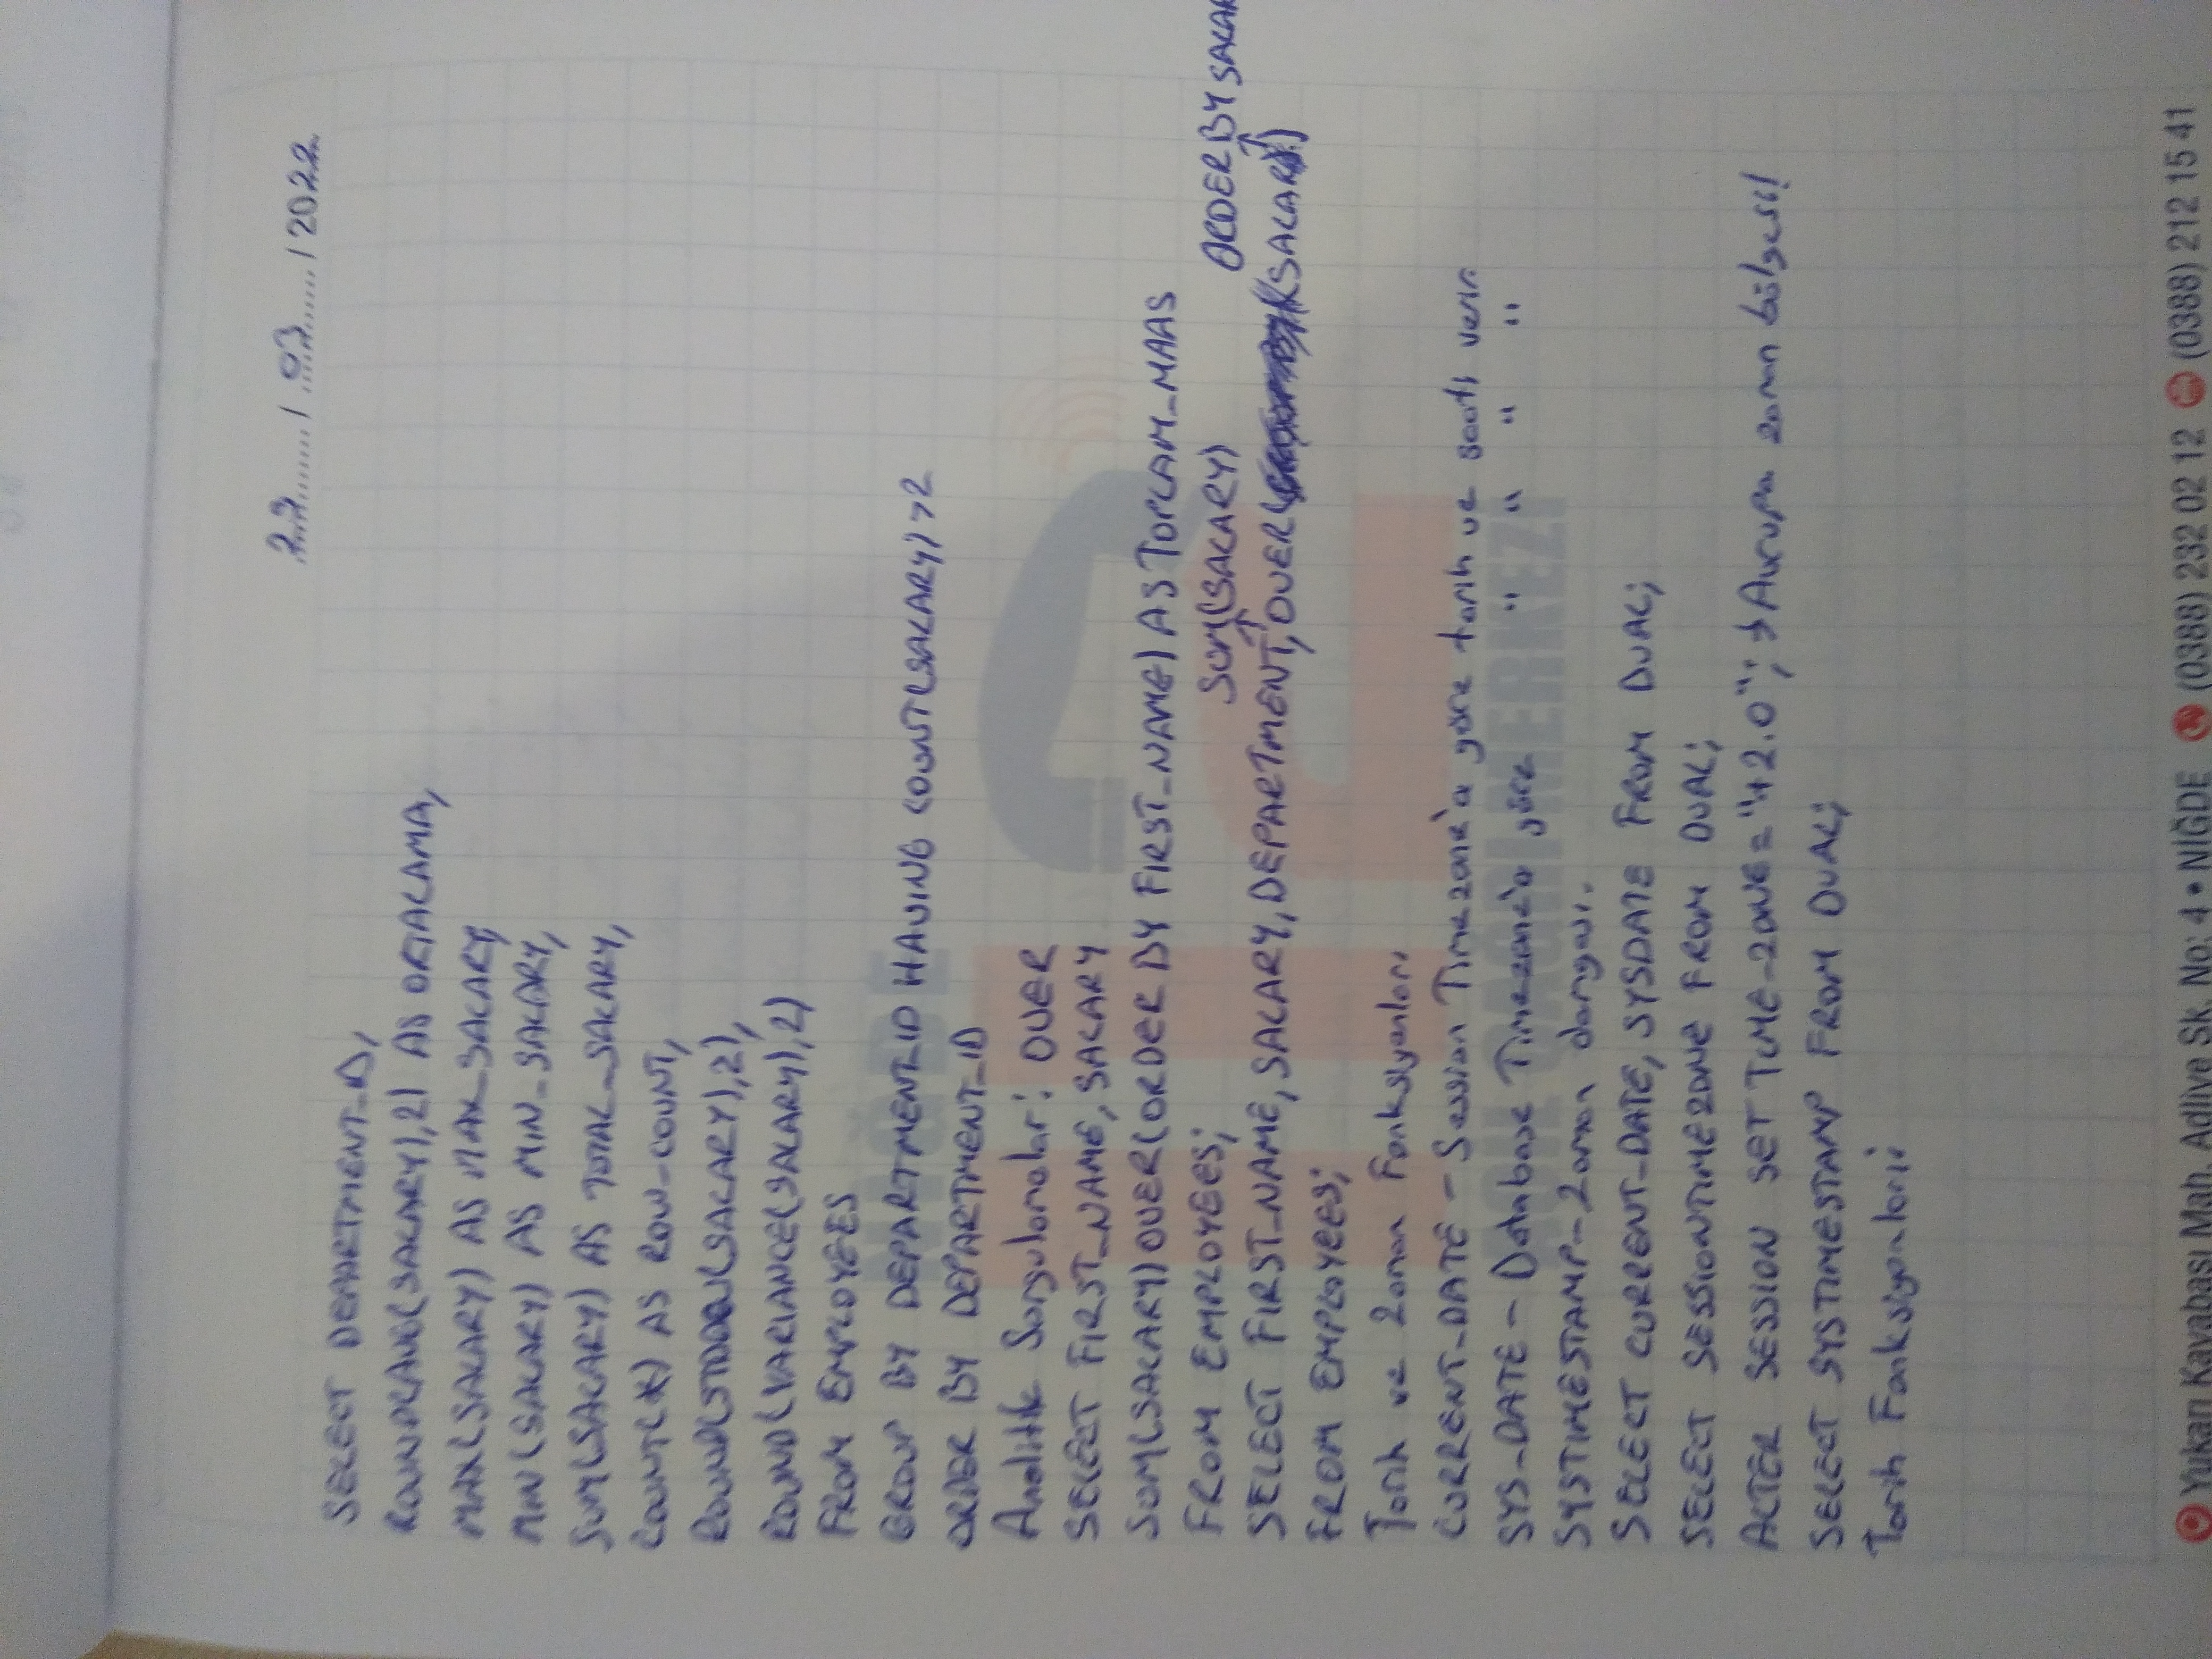 29 / 03 / 2022
SELECT DEPARTMENT_ID,
ROUND(AVG(SALARY),2) AS ORTALAMA,
MAX(SALARY) AS MAX_SALARY,
MIN(SALARY) AS MIN_SALARY,
SUM(SALARY) AS TOTAL_SALARY,
COUNT(*) AS ROW_COUNT,
ROUND(STDDEV(SALARY),2),
ROUND(VARIANCE(SALARY),2)
FROM EMPLOYEES
GROUP BY DEPARTMENT_ID HAVING COUNT(SALARY)>2
ORDER BY DEPARTMENT_ID
Analitik Sorgulamalar: OVER
SELECT FIRST_NAME, SALARY
SUM(SALARY) OVER(ORDER BY FIRST_NAME) AS TOPLAM_MAAS
FROM EMPLOYEES;
SUM(SALARY) ORDER BY SALAR
SELECT FIRST_NAME, SALARY, DEPARTMENT, OVER((SALARY)
FROM EMPLOYEES;
Tarih ve Zaman Fonksiyonları
CURRENT_DATE - Session Timezone'a göre tarih ve saati verir.
SYS_DATE - Database Timezone'a göre " " " "
SYSTIMESTAMP - Zaman damgası.
SELECT CURRENT_DATE, SYSDATE FROM DUAL;
SELECT SESSIONTIMEZONE FROM DUAL;
ALTER SESSION SET TIME_ZONE="+2.0"; → Avrupa zaman bölgesi!
SELECT SYSTIMESTAMP FROM DUAL;
Tarih Fonksiyonları:
NİĞDE
112
ACİL ÇAĞRI MERKEZİ
Yukarı Kayabaşı Mah. Adliye Sk. No: 4 • NİĞDE (0388) 232 02 12 (0388) 212 15 41